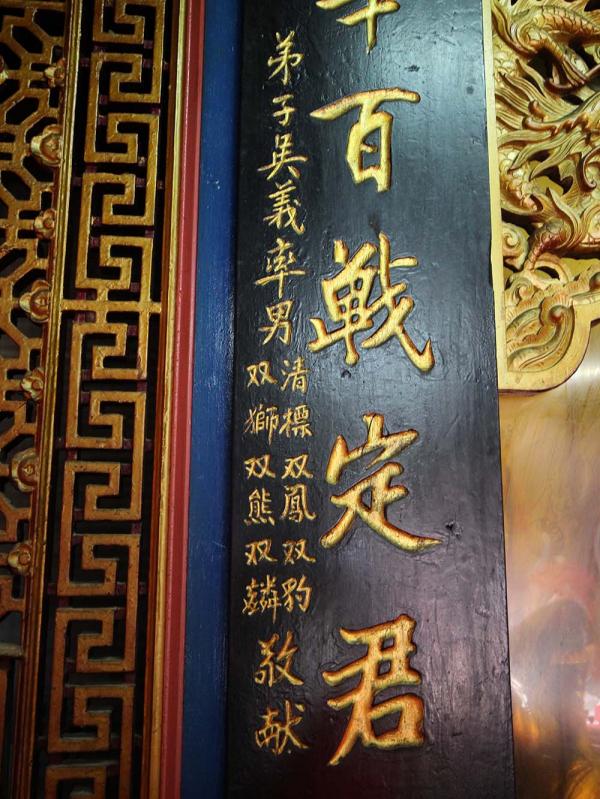 百戦定君
弟子吳義率男
清標双鳳双豹
双獅双熊双麟
敬献